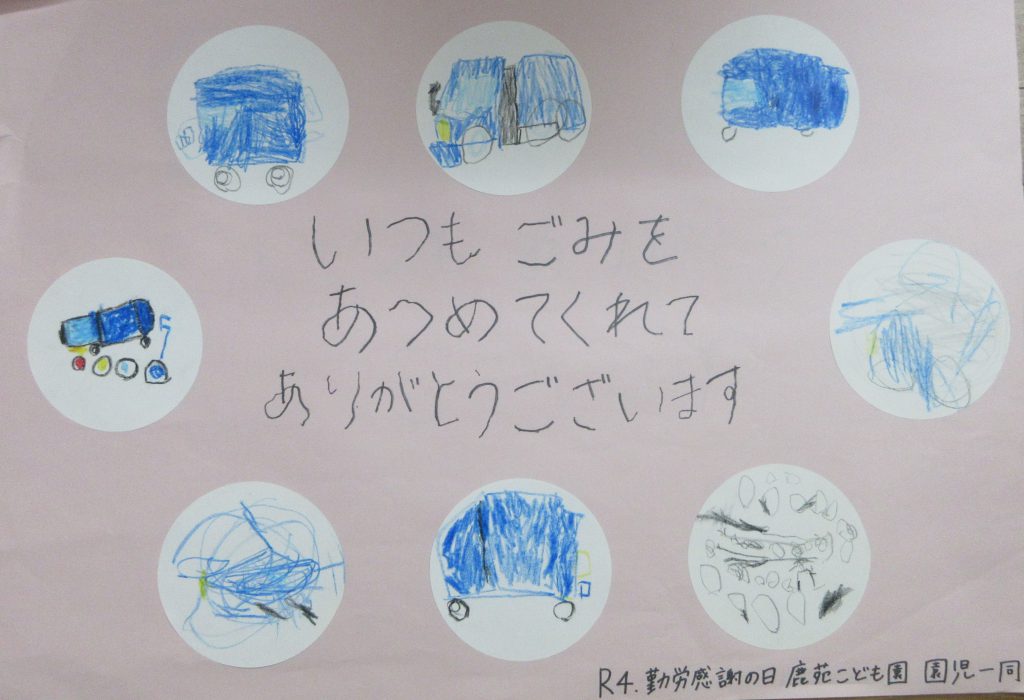 いつも ごみを
あつめてくれて
ありがとうございます
R4.勤労感謝の日 鹿苑こども園 園児一同